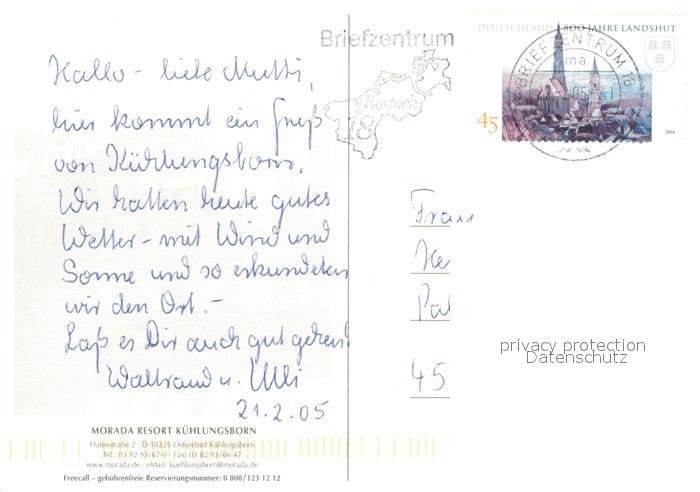 Hallo - liebe Mutti,
hier kommt ein Gruß
von Kühlungsborn.
Wir hatten heute gutes
Wetter - mit Wind und
Sonne und so erkundeten
wir den Ort. -
Laß es Dir auch gut gehen!
Waltraud u. Ulli
21.2.05
MORADA RESORT KÜHLUNGSBORN
Hafenstraße 2 · D-18225 Ostseebad Kühlungsborn
Tel.: 03 82 93/67-0 · Fax: 03 82 93/66-47
www.morada.de · eMail: kuehlungsborn@morada.de
Freecall – gebührenfreie Reservierungsnummer: 0 800/123 12 12
Briefzentrum
Rostock
18
DEUTSCHLAND 800 JAHRE LANDSHUT
BRIEFZENTRUM 18
ma
45
2004
Frau
He
Pal
45
privacy protection
Datenschutz